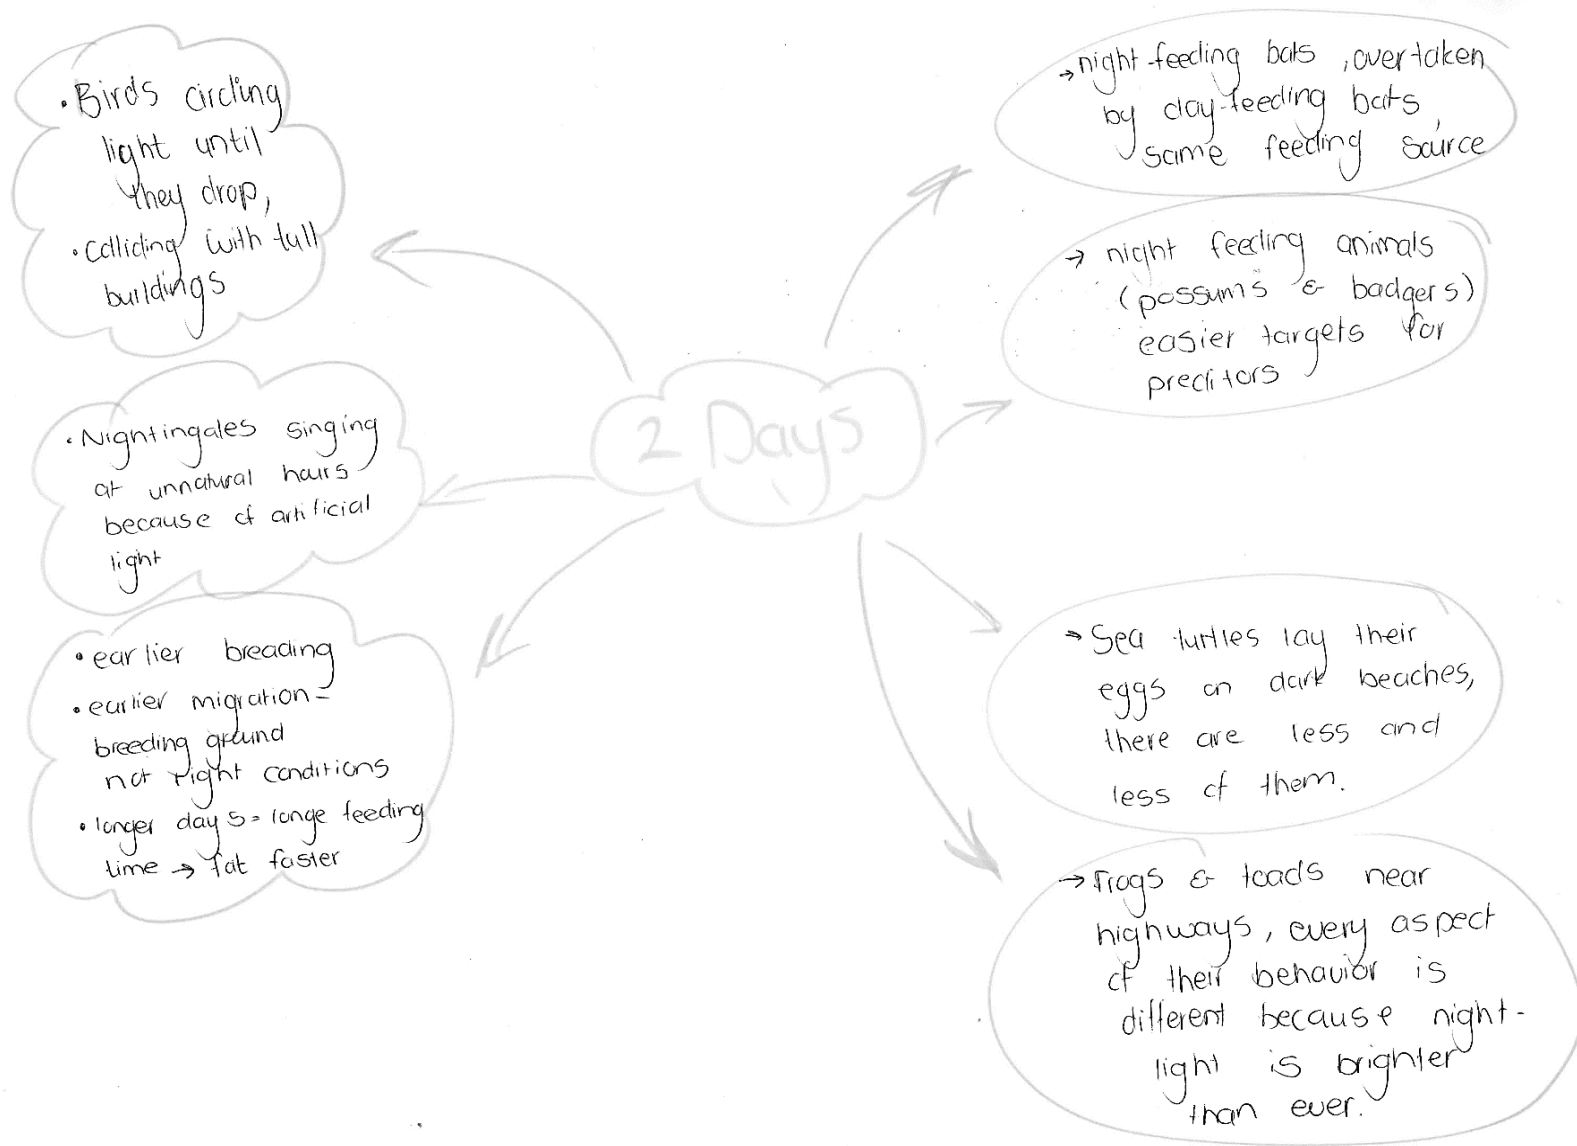 • Birds circling
light until
they drop,
• colliding with tall
buildings
• Nightingales singing
at unnatural hours
because of artificial
light
• earlier breading
• earlier migration =
breeding ground
not right conditions
• longer days = longe feeding
time → fat faster
2 Days
→ night-feeding bats , overtaken
by day-feeding bats,
same feeding source
→ night feeding animals
(possums & badgers)
easier targets for
preditors
→ Sea turtles lay their
eggs on dark beaches,
there are less and
less of them.
→ Frogs & toads near
highways, every aspect
of their behavior is
different because night-
light is brighter
than ever.